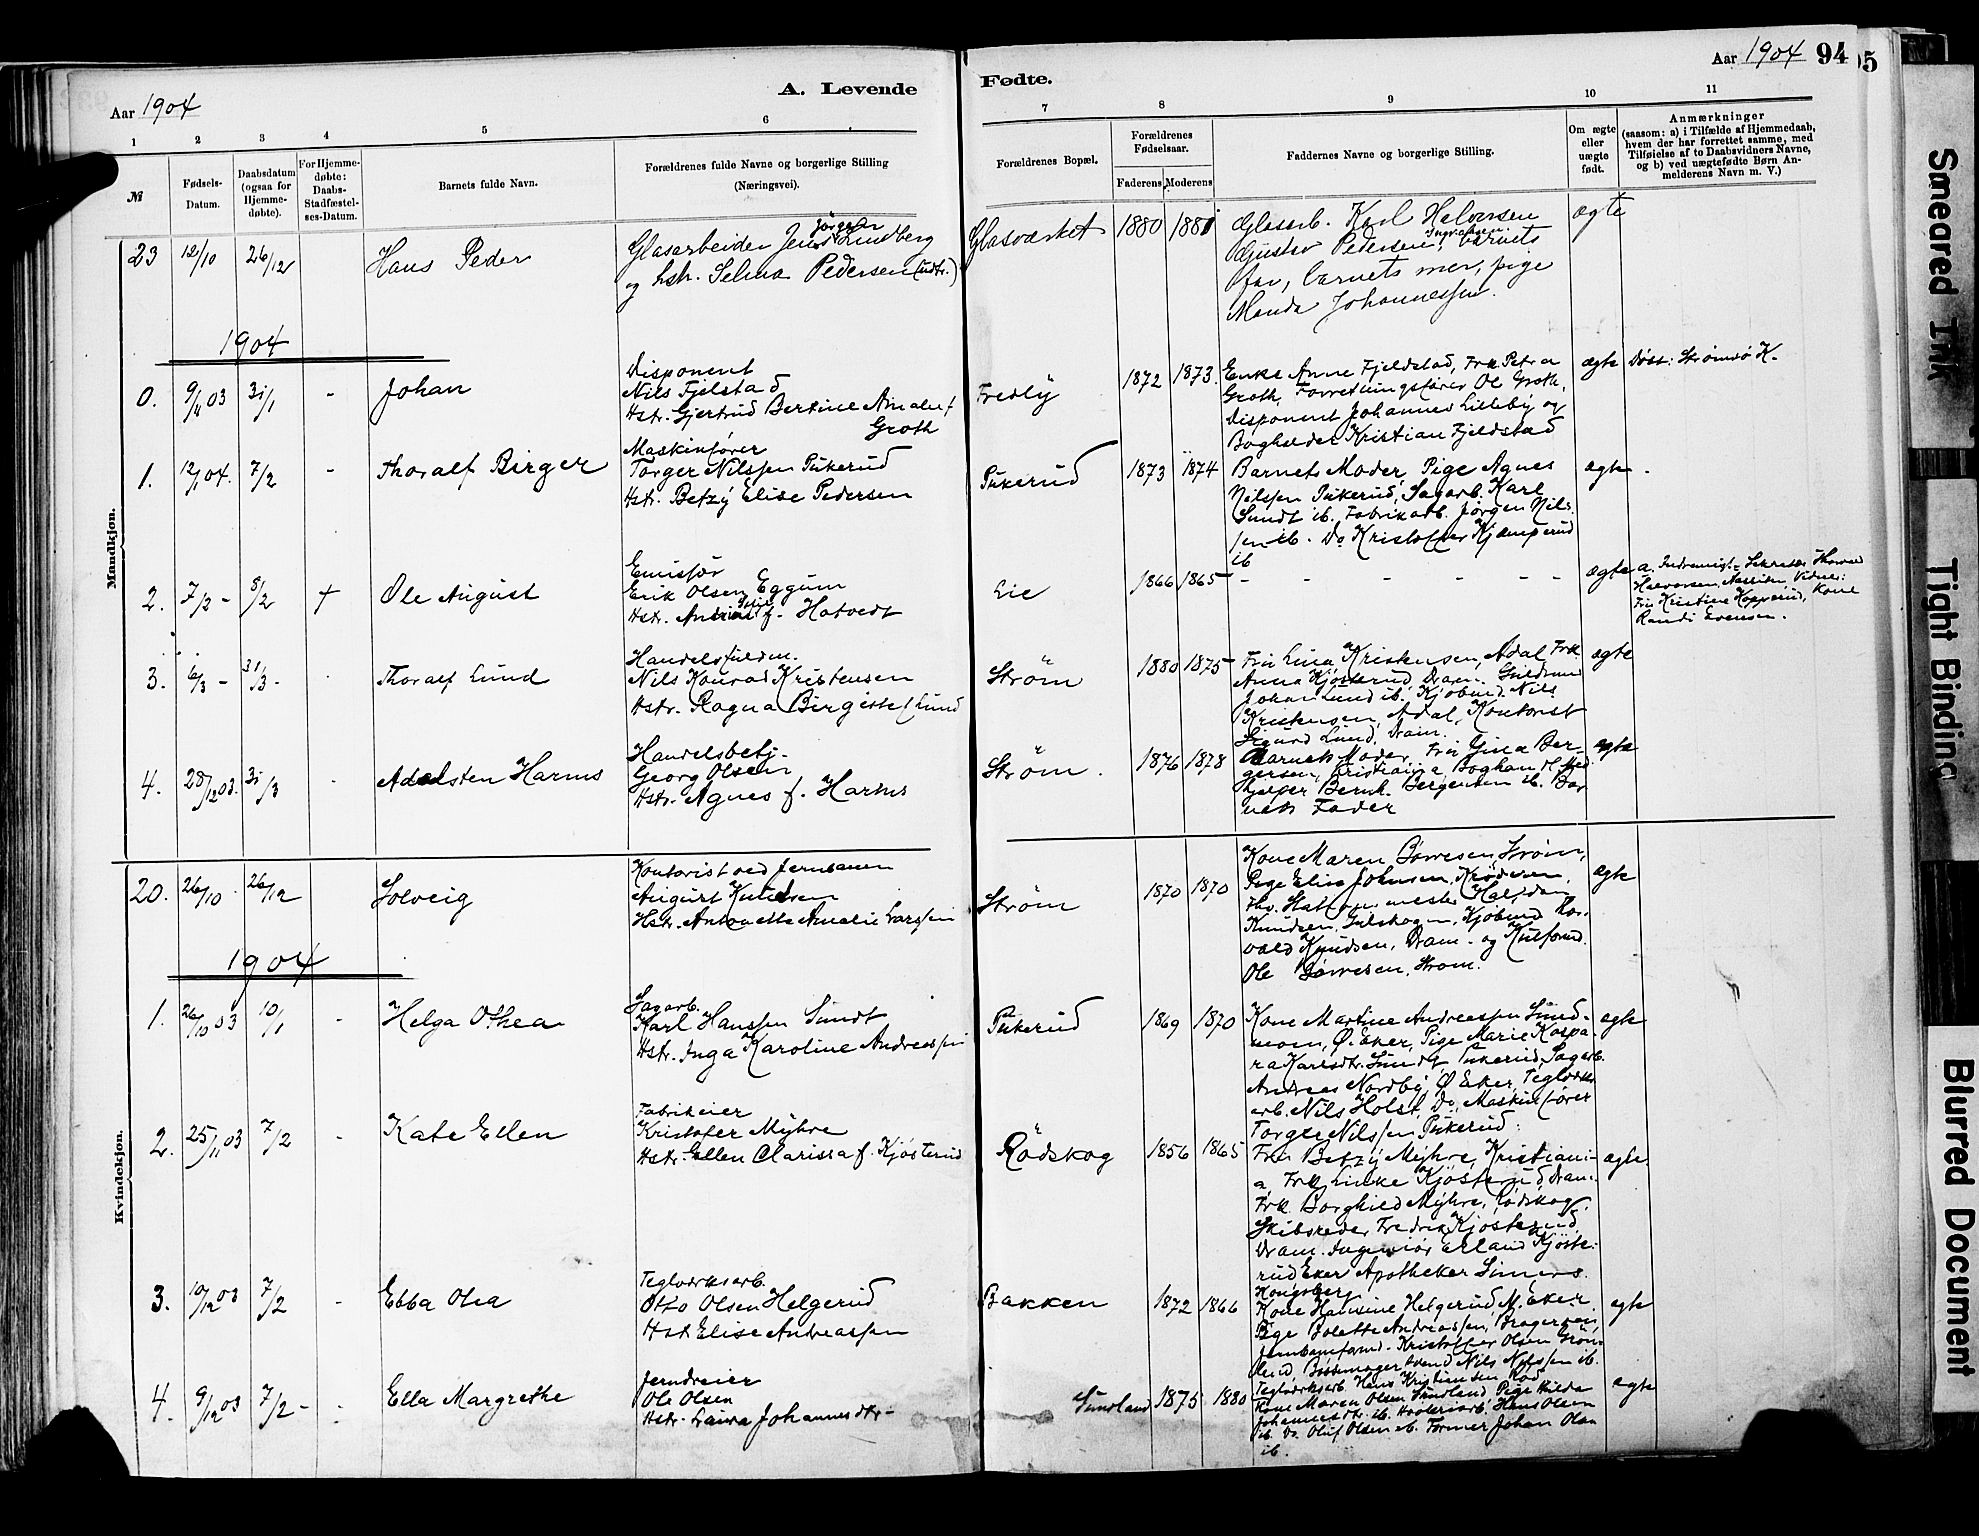 Aar 1904
A. Levende
Fødte.
Aar 1904 94
95
1 2 3 4 5 6 7 8 9 10 11
№
Fødsels-
Datum.
Daabsdatum
(ogsaa for
Hjemme-
døbte).
For Hjemme-
døbte:
Daabs-
Stadfæstel-
ses-Datum.
Barnets fulde Navn.
Forældrenes fulde Navne og borgerlige Stilling
(Næringsvei).
Forældrenes Bopæl.
Forældrenes
Fødselsaar.
Faderens Moderens
Faddernes Navne og borgerlige Stilling.
Om ægte
eller
uægte
født.
Anmærkninger
(saasom: a) i Tilfælde af Hjemmedaab,
hvem der har forrettet samme, med
Tilføielse af to Daabsvidners Navne,
og b) ved uægtefødte Børn An-
melderens Navn m. V.)
Mandkjøn.
23 12/10 26/12 Hans Peder
Jörgen
Glasarbeider Jens Lundberg
og hstr. Selma Pedersen (udtr.)
Glasværket 1880 1881
Glasarb. Karl Halvorsen
Gustav Pedersen, barnets
far, barnets mor, pige
Manda Johannessen.
ægte
1904
0. 9/4 03 31/1 - Johan
Disponent
Nils Fjelstad
Hstr. Gjertrud Bertine Amalie f.
Groth
Fredly 1872 1873.
Enke Anne Fjeldstad, Frk Petra
Groth, Forretningsfører Ol Groth,
Disponent Johannes Lilleby og
Bogholder Kristian Fjeldstad
ægte Døbt: Strømsö K.
1. 12/1 04. 7/2 - Thoralf Birger
Maskinfører
Torger Nilssen Pukerud
Hstr. Betzy Elise Pedersen
Pukerud 1873 1874
Barnets Moder, Pige Agnes
Nilssen Pukerud, Sagarb. Karl
Sundt ib. Fabrikarb. Jørgen Nils-
sen ib. Do Kristoffer Kjæmperud
ib
ægte
2. 7/2 - 8/2 † Ole August
Emissær
Erik Olsen Eggum
Hstr. f. Hotvedt
Lie 1866 1865 - - - - - -
ægte
Halvorsen, Vidner:
Fru Kristine Kopperud, Kone
Randi Evensen.
3. 6/3 - 31/3 - Thoralf Lund
Nils Konrad Kristensen
Hstr. Ragna Birgitte f Lund
Ström 1880 1875
Fru Lina Kristensen, Adal, Frk.
Anna Kjösterud, Dram. Guldsm
Johan Lund ib. Kjøbmd. Nils
Kristensen, Adal, Kontorist
Sigurd Lund, Dram.
ægte
4. 28/12 03. 31/3 Adelsten Harms
Handelsbetj.
Georg Olsen
Hstr. Agnes f. Harms
Ström. 1876 1878
Barnets Moder, Fru Gina Ber-
gersen, Kristiania, Boghandl Med-
hjelper Bernh. Bergersen ib. Bar
nets Fader
ægte
Kvindekjøn.
20. 26/10 26/12 Solveig
Kontorist ved Jernbanen
August Knudsen
Hstr. Antonette Amalie Larssen
Ström 1870 1870
Kone Maren Børresen, Strøm,
Pige Elise Johnsen, Krøderen,
fhv. Stationsmester Halfdan
Knudsen, Gulskogen, Kjøbmd Ro-
vald Knudsen, Dram. og Kulformd.
Ole Børresen, Strøm.
ægte
1904
1. 26/10 03 10/1 - Helga Othea
Sagarb.
Karl Hanssen Sundt
Hstr. Inga Karoline Andreassen
Pukerud 1869 1870
Kone Martine Andreassen Sund-
moen, Ø. Eker, Pige Marie Kaspa-
ra Karlsdtr. Sundt Pukerud, Sagarb.
Andreas Nordby, Ø Eker, Teglværks
arb. Nils Holst, Do, Maskinfører
Torger Nilssen Pukerud.
ægte
2. 25/11 03 7/2 - Kate Ellen
Fabrikeier
Kristofer Myhre
Hstr. Ellen Clarissa f. Kjösterud
Rödskog 1856 1865
Fru Betzy Myhre, Kristiani-
a, Frk Linke Kjösterud, Dram.
Frk. Borghild Myhre, Rødskog,
Skibsreder Fredrik Kjøsterud,
Dram. Ingeniør Erland Kjöste-
rud Eker Apotheker Simers
Kongsberg
ægte.
3. 10/12 03 7/2 - Ebba Olea
Teglværksarb.
Otto Olsen Helgerud
Hst Elise Andreassen
Bakken 1872 1866
Kone Hansine Helgerud, M. Eker,
Pige Bolette Andreassen, Bragernæs,
Jernbaneformd. Kristoffer Olsen Grøn-
lund, Børsemagersvend Nils Nilssen ib.
Teglværksarb. Hans Kristiansen Rød
ægte
4. 9/12 03 7/2 - Ella Margrethe
Jerndreier
Ole Olsen
Hstr. Laura Johannesdtr.
Sundland 1875 1880
Kone Maren Olsen Sundland, Pige Hilda
Johannesdtr. ib. Hans Olsen
ib. Do. Oluf Olsen ib. Former Johan Olsen
ib.
ægte
Smeared Ink
Tight Binding
Blurred Document